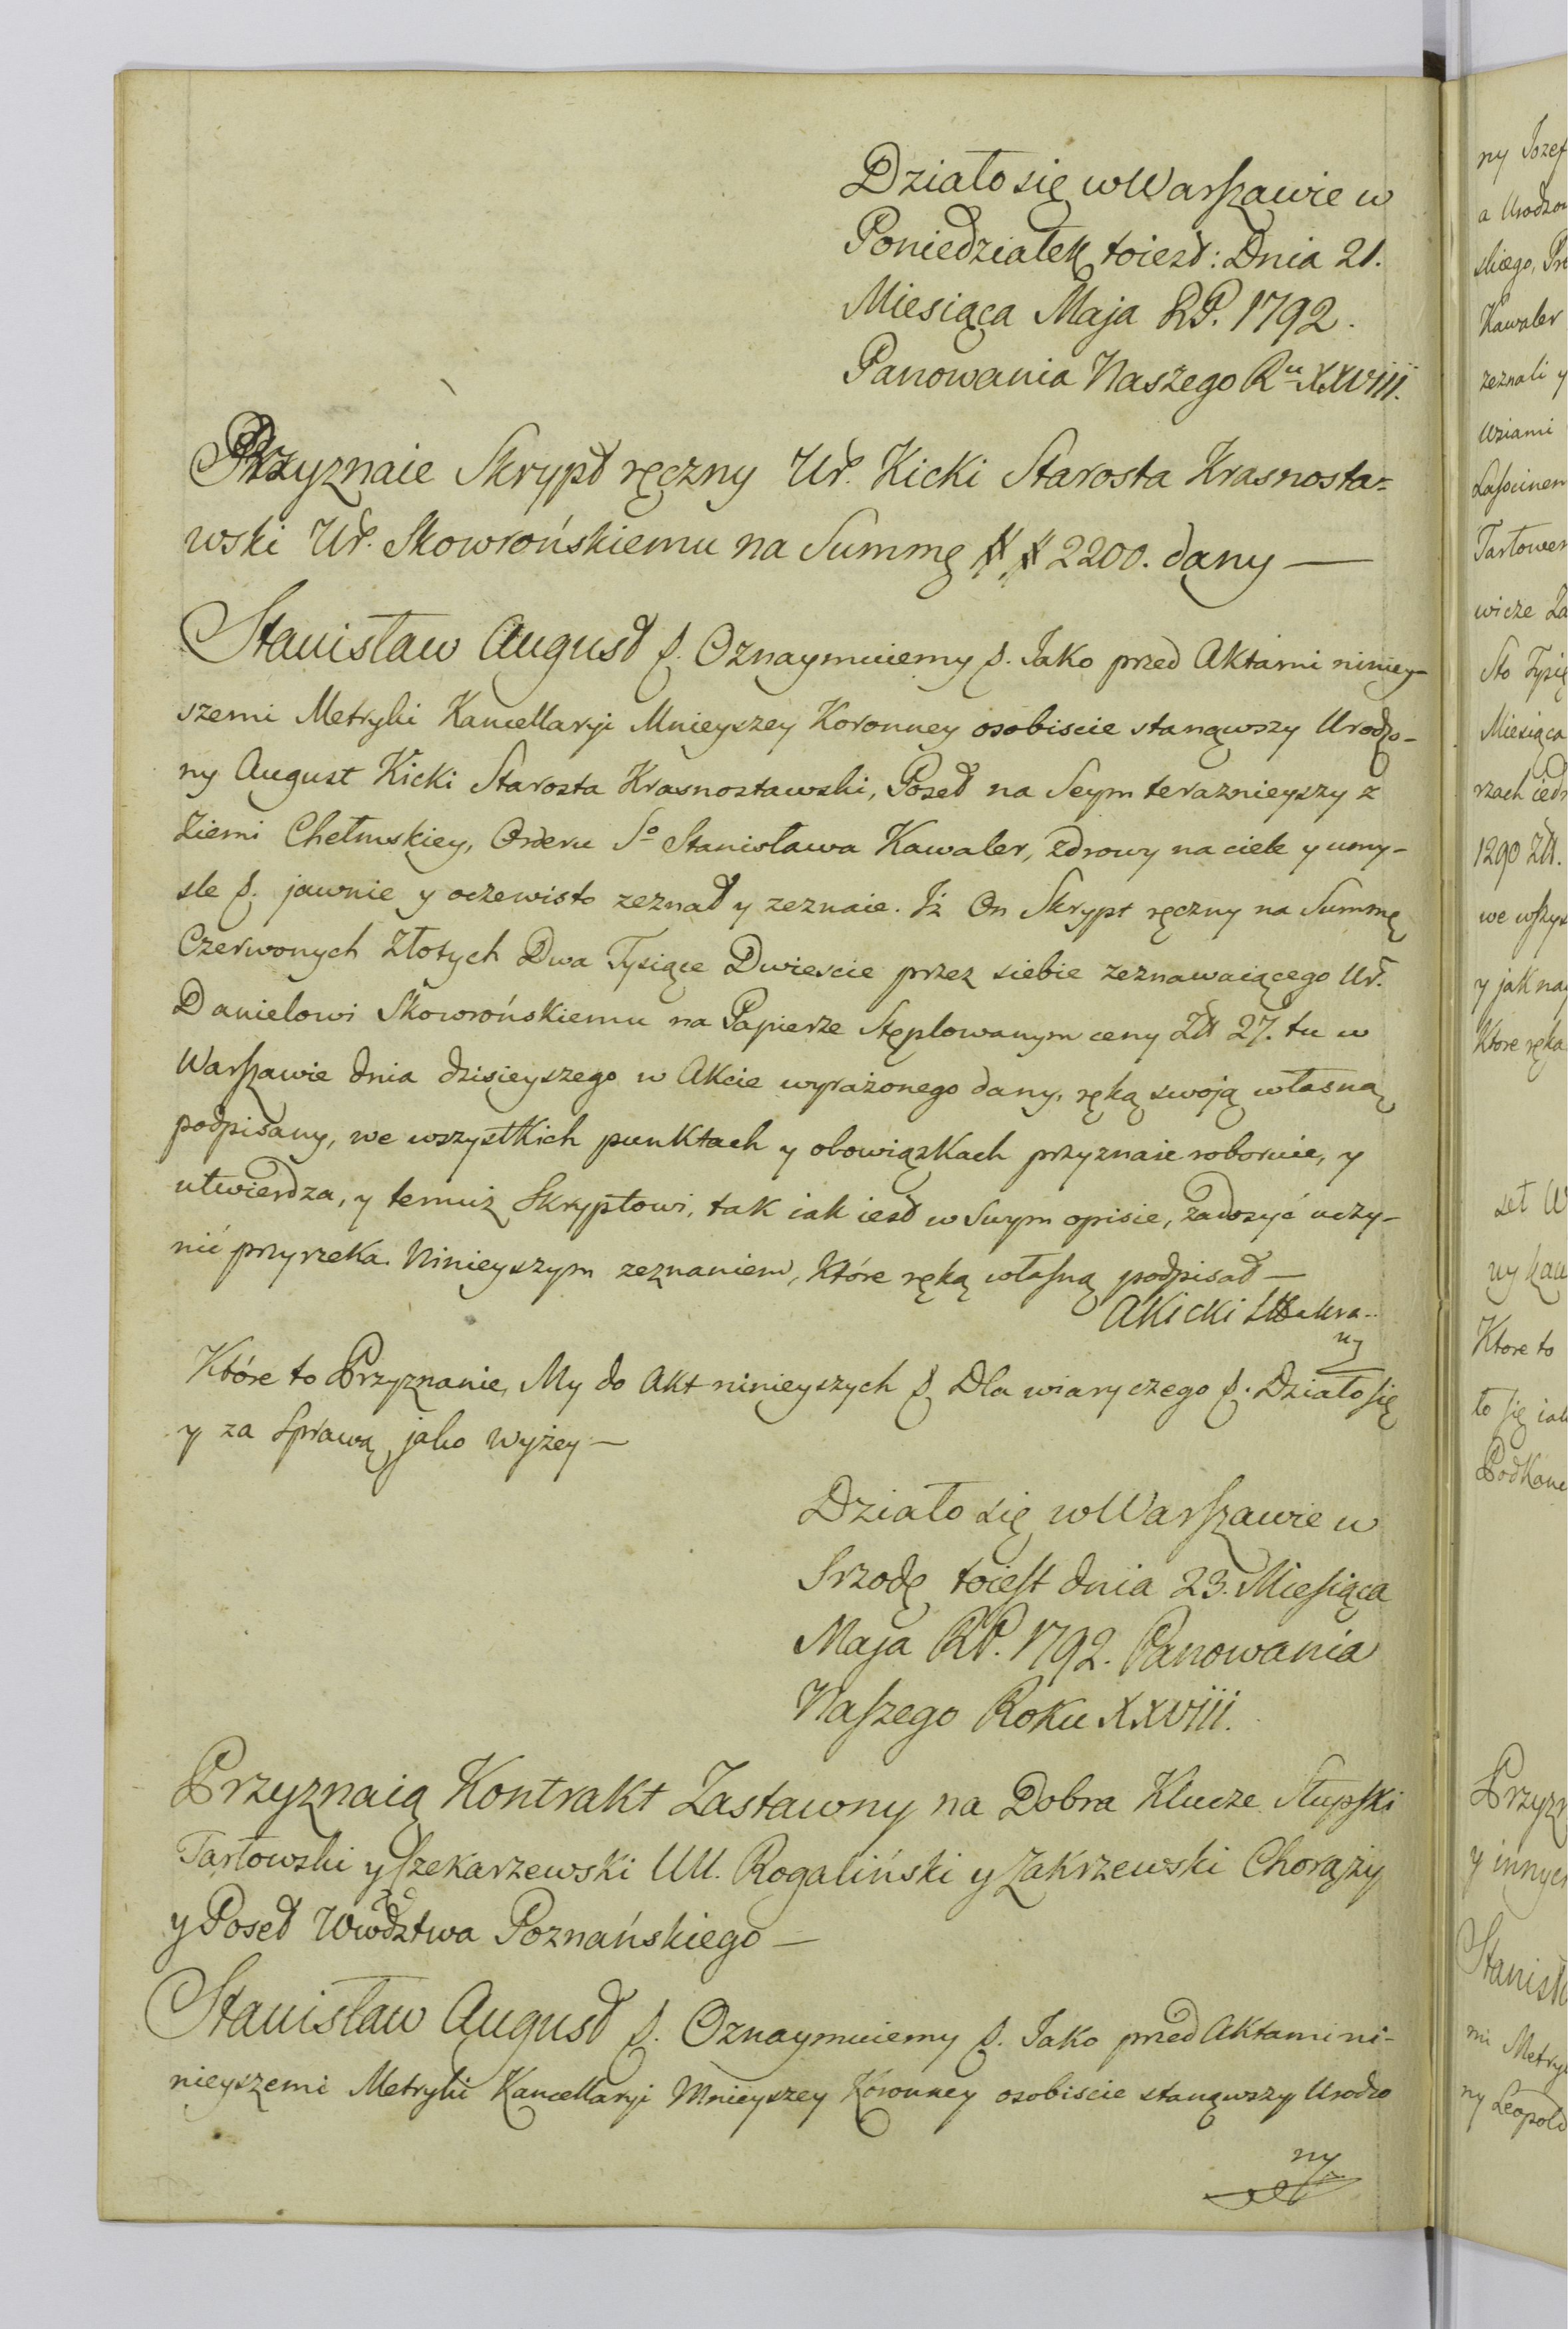 Działo się w Warszawie w
Poniedziałek toiest: Dnia 21.
Miesiąca Maja RP. 1792.
Panowania Naszego Ru XXVIII.
Przyznaie Skrypt ręczny Ur. Kicki Starosta Krasnosta=
wski Ur. Skowrońskiemu na Summę 2200. dany —
Stanisław August &. Oznaymuiemy &. Jako przed Aktami niniey-
szemi Metryki Kancellaryi Mnieyszey Koronney osobiscie stanąwszy Urodzo-
ny August Kicki Starosta Krasnostawski, Poseł na Seym teraznieyszy z
Ziemi Chełmskiey, Orderu So Stanisława Kawaler, zdrowy na ciele y umy-
sle &. jawnie y oczewisto zeznał y zeznaie. Iż On Skrypt ręczny na Summę
Czerwonych Złotych Dwa Tysiące Dwieście przez siebie zeznawaiącego Ur.
Danielowi Skowrońskiemu na Papierze Stęplowanym ceny Zł 27. tu w
Warszawie dnia dzisieyszego w Akcie wyrażonego dany, ręką swoją własną
podpisany, we wszystkich punktach y obowiązkach przyznaie robornie, y
utwierdza, y temuż Skryptowi, tak iak iest w Swym opisie, zadosyć uczy-
nić przyrzeka. Ninieyszym zeznaniem, które ręką własną podpisał —
AKicki
Które to Przyznanie, My do Akt ninieyszych &. Dla wiary czego &. Działo się
y za Sprawą jako wyżey —
Działo się w Warszawie w
Srzodę toiest dnia 23. Miesiąca
Maja RP. 1792. Panowania
Naszego Roku XXVIII.
Przyznaią Kontrakt Zastawny na Dobra Klucze Słupski
Tarłowski y Szekarzewski UU. Rogaliński y Zakrzewski Chorąży
y Poseł Wwdztwa Poznańskiego —
Stanisław August &. Oznaymuiemy &. Jako przed Aktami ni-
nieyszemi Metryki Kancellaryi Mnieyszey Koronney osobiscie stanąwszy Urodzo
ny
ny Jozef
a Urodzon
skiego,
Kawaler
zeznali y
Tarłowsk
wicze
Sto Tysię
Miesiąca
1290 Zł.
we wszys
y jak nay
Które ręką
Ktore to
to się iak
Podkanc
Przyzn
y innych
Stanisła
mi Metryk
ny Leopold